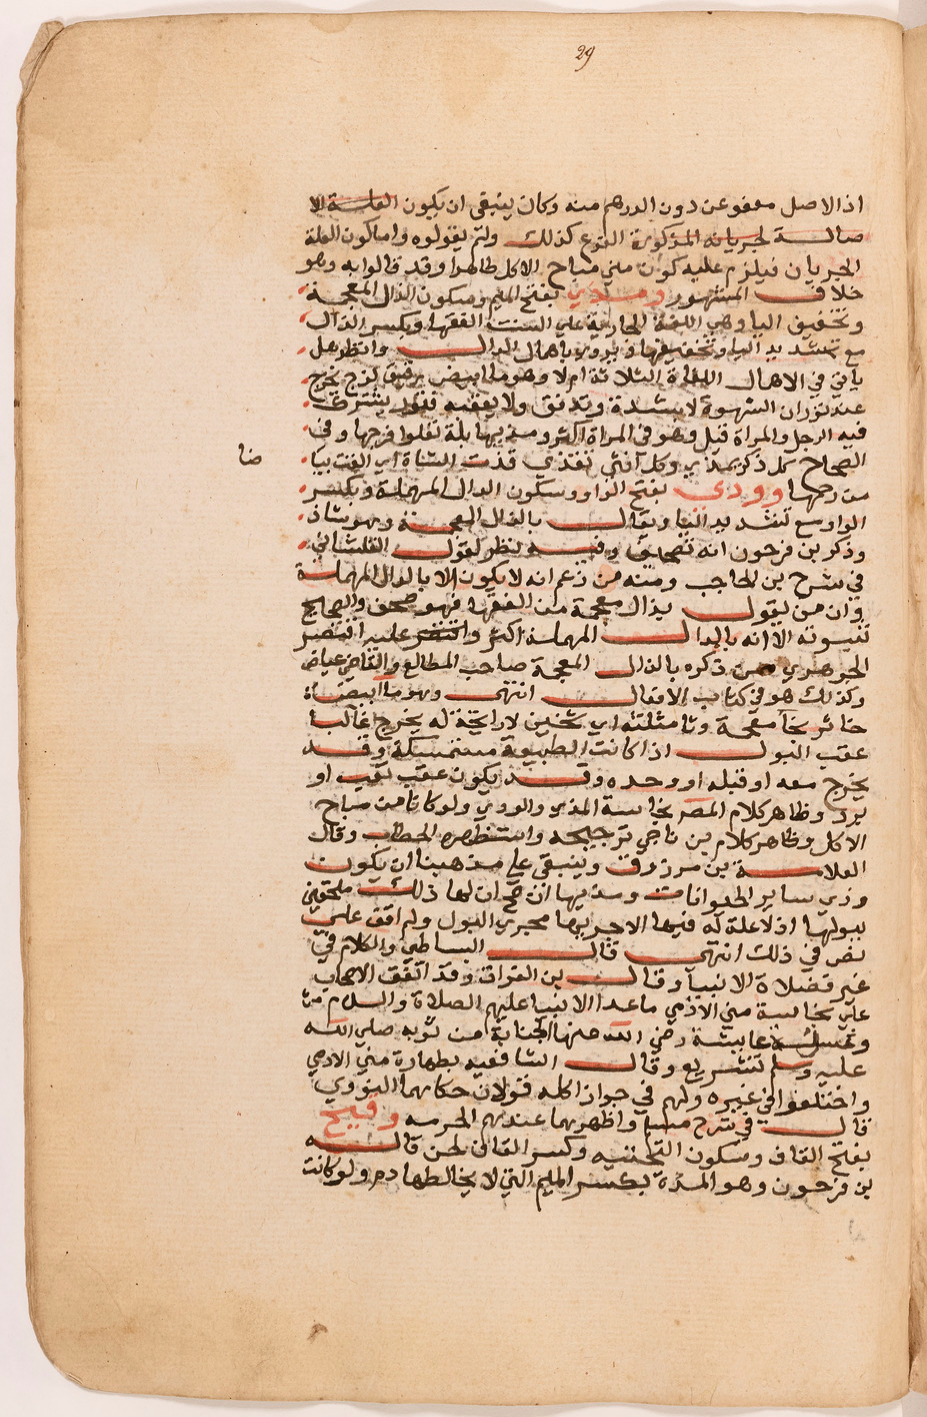 29
اذ الاصل معفو عن دون الدرهم منه وكان ينبغي ان يكون العلة الا
صالة لجريانه المذكورة الفرع كذلك ولم يقولوه واما كون العلة
الجريان فيلزم عليه كون مني مباح الاكل طاهرا وقد قالوا به وهو
خلاف المشهور ومذي بفتح الميم وسكون الذال المعجمة
وتخفيف اليا وهي اللغة الجارية على السنة الفقها وبكسر الذال
مع تشديد اليا وتخفيفها ويروى باهمال الدال وانظر هل
ياتي في الاهمال اللغات الثلاثة ام لا وهو ما ابيض رقيق لزج يخرج
عند ثوران الشهوة لا بشدة وتدفق ولا يعقبه فتور يشترك
فيه الرجل والمراة قيل وهو في المراة اكثر ومذيها بلة تعلوا فرجها وفي
الصحاح كل ذكر يمذي وكل انثى تقذي قذت الشاة اي القت بيا
ضا
من رحمها وودي بفتح الواو وسكون الدال المهملة وبكسر
الواو مع تشديد اليا ويقال بالذال المعجمة وهو شاذ
وذكر بن فرحون انه تصحيف وفيه نظر لقول القلشاني
في شرح بن الحاجب ومنه من زعم انه لا يكون الا بالدال المهملة
وان من يقول بذال معجمة من الفقها فهو صحف والصحيح
ثبوته الا انه بالدال المهملة اكثر واقتصر عليه اقتصر
الجوهري من ذكره بالذال المعجمة صاحب المطالع والقاضي عياض
وكذلك هو في كتاب الافعال انتهى وهو ما ابيض
خاثر بخا معجمة وثا مثلثة اي ثخين لا رايحة له يخرج غالبا
عقب البول اذا كانت الطبيعة مستمسكة وقد
يخرج معه او قبله او وحده وقد يكون عقب تعب او
برد وظاهر كلام المصر نجاسة المذي والودي ولو كانا من مباح
الاكل وظاهر كلام بن ناجي ترجيحه واستظهره الحطاب وقال
العلامة بن مرزوق وينبغي على مذهبنا ان يكون
وذي ساير الحيوانات ومذيها ان صح ان لها ذلك ملحقين
ببولها اذ لا علة له فيها الا جريها مجرى البول ولم اقف على
نص في ذلك انتهى قال البساطي والكلام في
غير فضلاة الانبيا وقال بن الفرات وقد اتفق الاصحاب
على نجاسة مني الادمي ما عدا الانبيا عليهم الصلاة والسلام من
وغسل عايشة رضي الله عنها الجنابة من ثوبه صلى الله
عليه وسلم تشريع وقال الشافعيه بطهارة مني الادمي
واختلفوا في غيره ولهم في جواز اكله قولان حكاهما النووي
قال في شرح مسلم واظهرهما عندهم الحرمه وقيح
بفتح القاف وسكون التحتيه وكسر القاف لحن قاله
بن فرحون وهو المدة بكسر الميم التي لا يخالطها دم ولو كانت